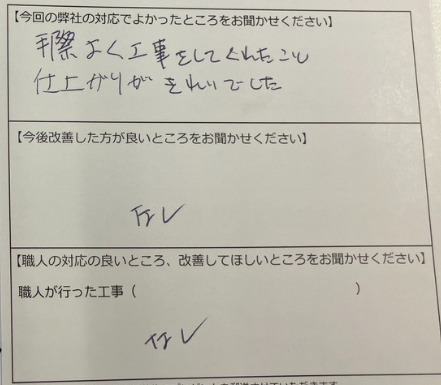 【今回の弊社の対応でよかったところをお聞かせください】
手際よく工事をしてくれたこと
仕上がりがきれいでした
【今後改善した方が良いところをお聞かせください】
なし
【職人の対応の良いところ、改善してほしいところをお聞かせください】
職人が行った工事（　　　　　　　　　　）
なし